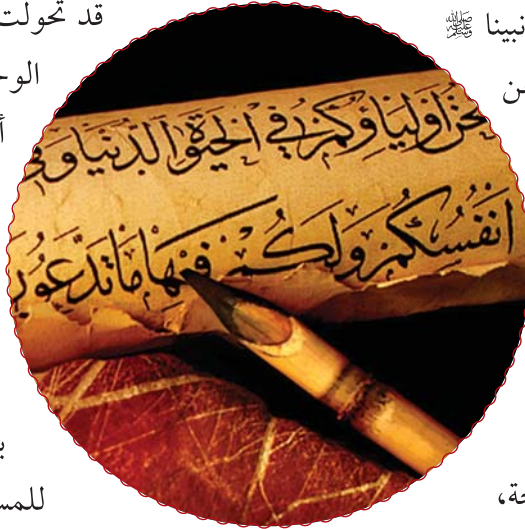 نبينا ﷺ
قد تحولت
نحن اولياؤكم في الحيوة الدنيا وفي
انفسكم ولكم فيها ما تدعو